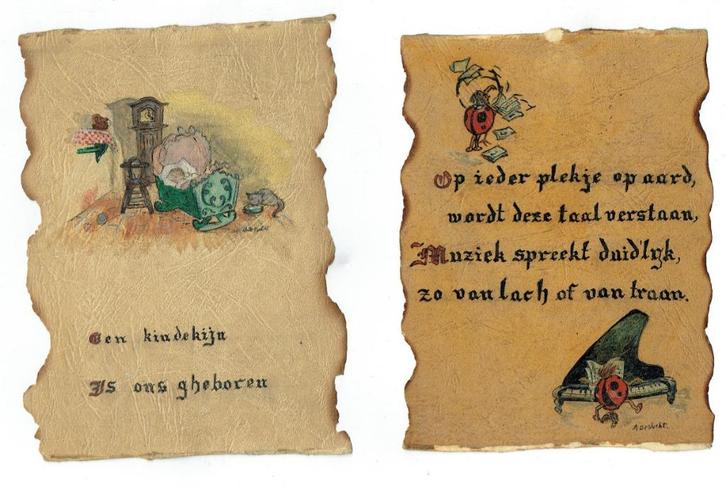 Een kindekijn
Is ons gheboren
Op ieder plekje op aard,
wordt deze taal verstaan,
Muziek spreekt duidlijk,
zo van lach of van traan.